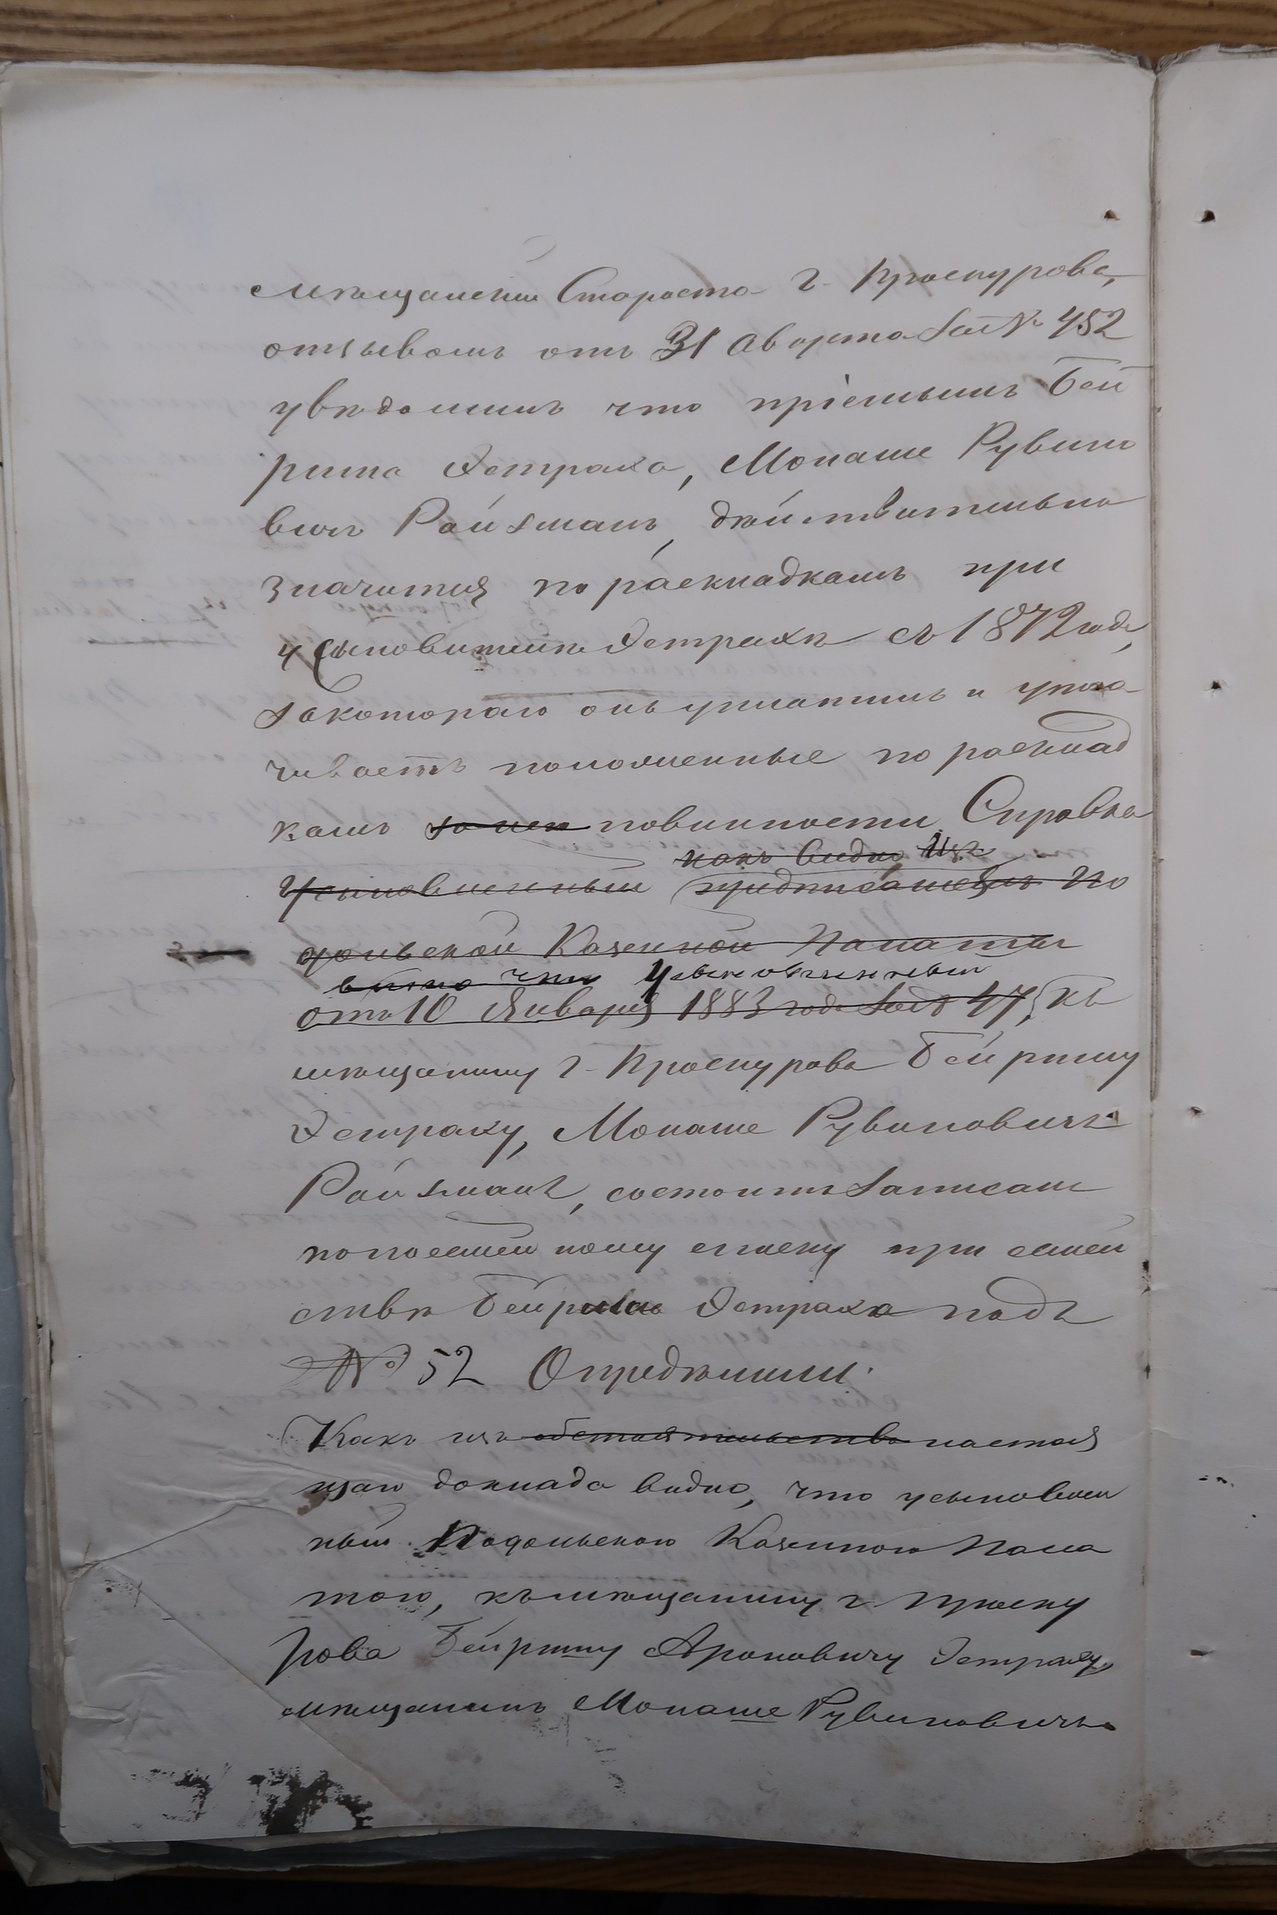 мѣщанскій Староста г. Проскурова,
отзывомъ отъ 31 Августа за № 452
увѣдомилъ что пріемышъ Бей
риша Эстраха, Монаше Рувино
вичъ Райзманъ, дѣйствительно
значится по раскладкамъ при
усыновителѣ Эстрахѣ съ 1872 года,
за котораго онъ уплатилъ и упла
чиваетъ положенные по расклад
камъ за него повинности Справка
какъ видно изъ
Усыновленный предписанія По
дольской Казенной Палаты
видно что Усыновленный
отъ 10 Января 1883 года за № 47, къ
мѣщанину г. Проскурова Бейришу
Эстраху, Монаше Рувиновичъ
Райзманъ, состоитъ записан
по посемейному списку при семей
ствѣ Бейриша Эстраха подъ
№ 52 Опредѣлили:
Какъ изъ обстоятельствъ настоя
щаго доклада видно, что усыновлен
ный Подольскою Казенною Пала
тою, къ мѣщанину г. Проску
рова Бейришу Ароновичу Эстраху
мѣщанинъ Монаше Рувиновичъ